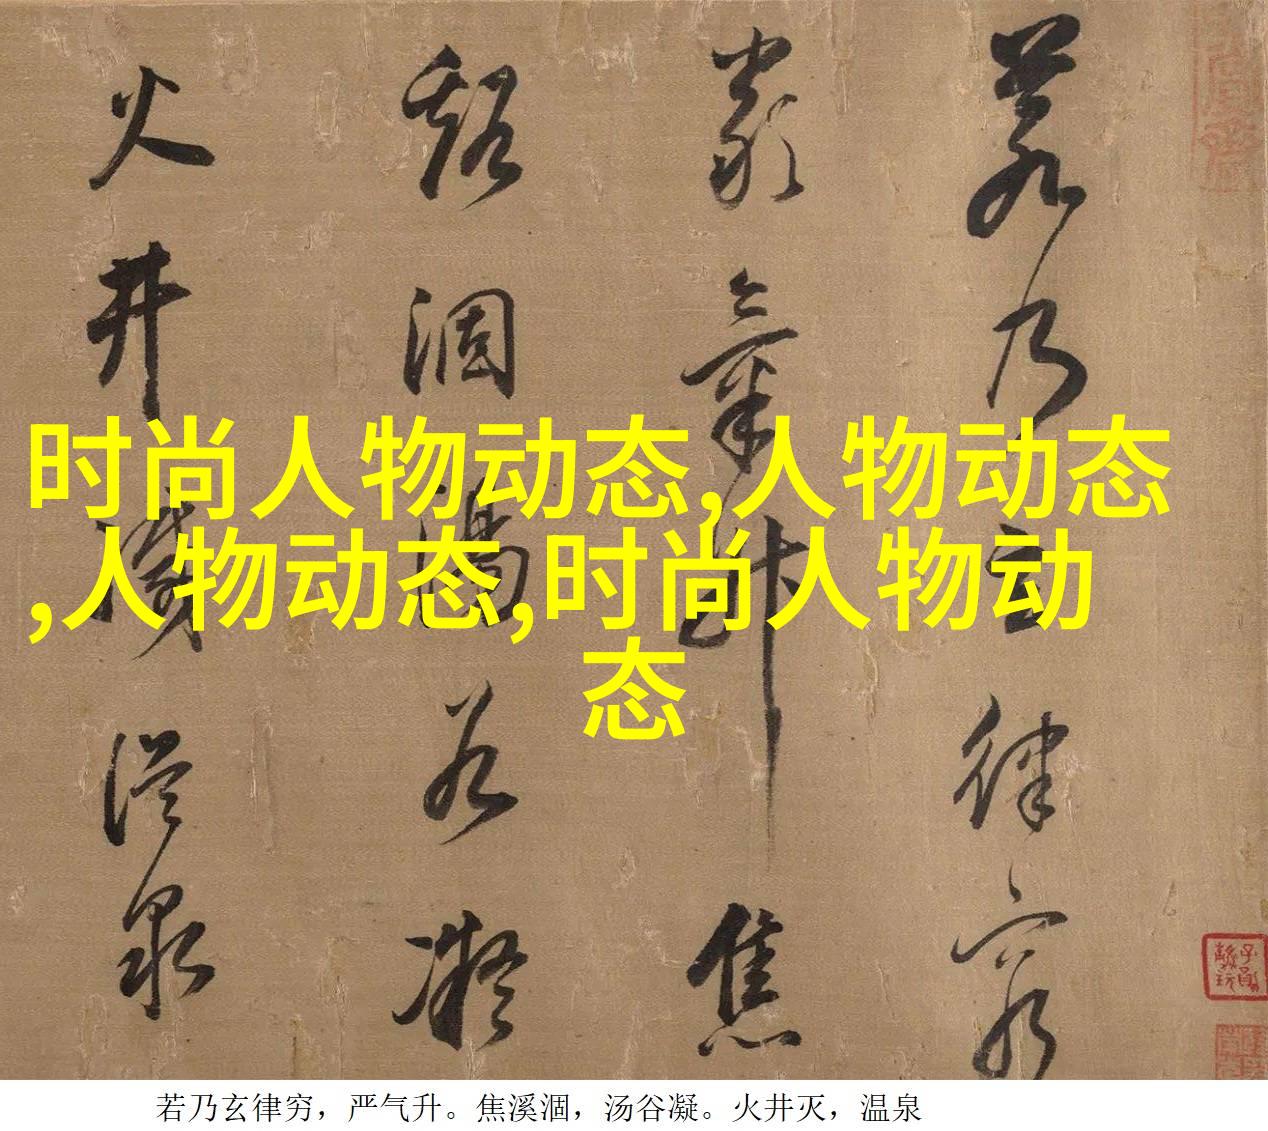 若乃玄律窮
嚴氣升焦
谿涸湯谷凝
火井滅溫泉
时尚人物动态,人物动态
,人物动态,时尚人物动
态
若乃玄律穷，严气升。焦溪涸，汤谷凝。火井灭，温泉